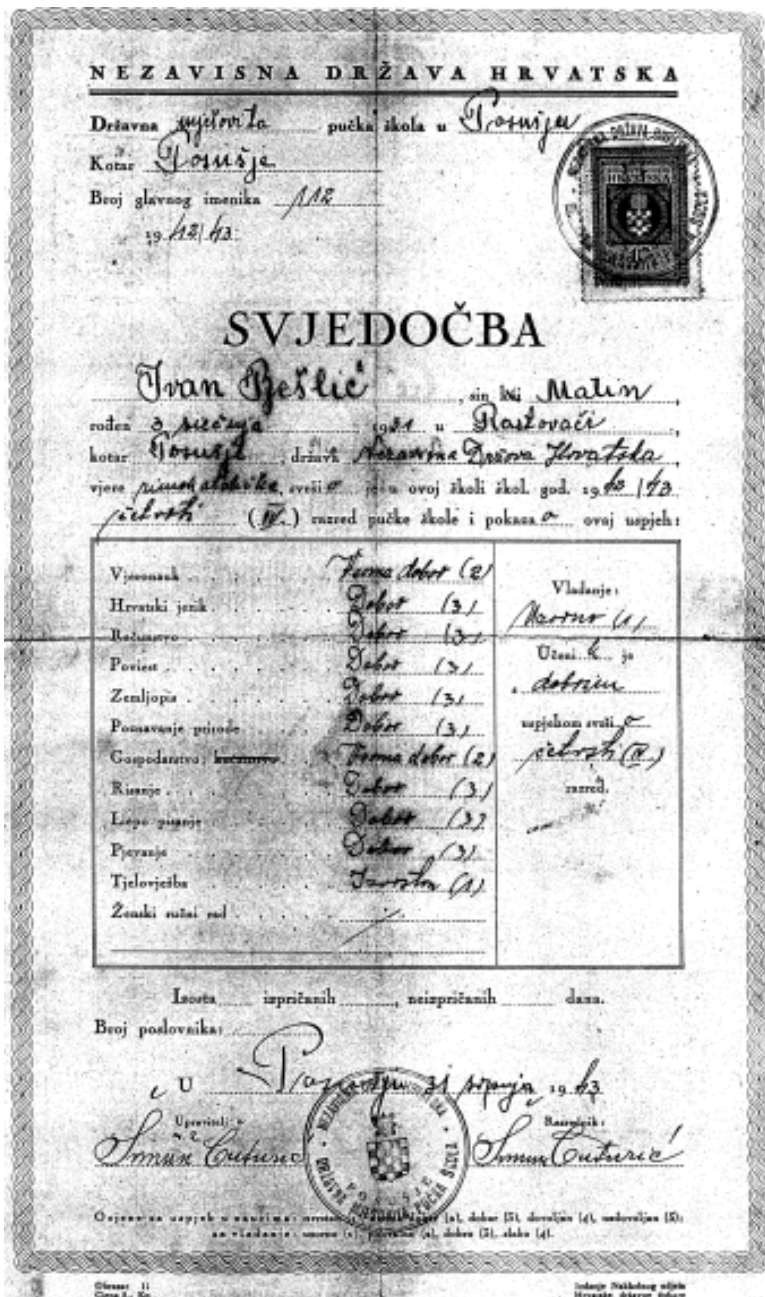 NEZAVISNA DRŽAVA HRVATSKA
Državna mješovita pučka škola u Posušju
Kotar Posušje
Broj glavnog imenika 112
1942/43
HRVATSKA
SVJEDOČBA
Ivan Bešlić, sin Matin,
rođen 3. siečnja 1931 u Rastovači,
kotar Posušje, država Nezavisna Država Hrvatska
vjere rimokatoličke, svršio je u ovoj školi škol. god. 1942/43
četvrti (IV.) razred pučke škole i pokazao ovaj uspjeh:
Vjeronauk Vrlo dobar (2)
Hrvatski jezik Dobar (3)
Računstvo Dobar (3)
Poviest Dobar (3)
Zemljopis Dobar (3)
Poznavanje prirode Dobar (3)
Gospodarstvo, kućanstvo dobar (2)
Risanje Dobar (3)
Liepo pisanje Dobar (3)
Pjevanje Dobar (3)
Tjelovježba (1)
Ženski ručni rad
Vladanje:
Uzorno (1)
Učenik je
s dobrim
uspjehom svršio
četvrti (IV)
razred.
Izosta izpričanih, neizpričanih dana.
Broj poslovnika:
U Posušju 31 srpnja 1943
Upravitelj Razrednik:
Šimun Čuturić Šimun Čuturić
NEZAVISNA DRŽAVA HRVATSKA
DRŽAVNA MJEŠOVITA PUČKA ŠKOLA
POSUŠJE
Ocjene za uspjeh u naucima: dobar (3), dovoljan (4), nedovoljan (5);
za vladanje: uzorno (1), dobro (3), slabo (4).
Obrazac 11